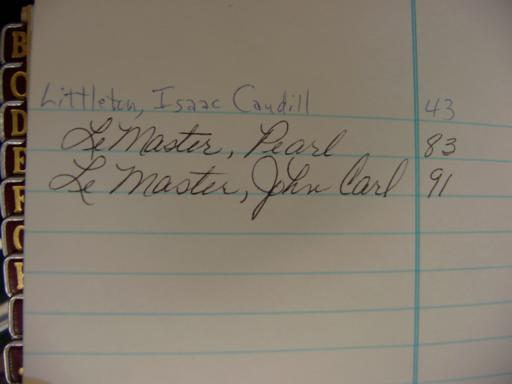 Littleton, Isaac Caudill 43
LeMaster, Pearl 83
Le Master, John Carl 91
B
C
D
E
F
G